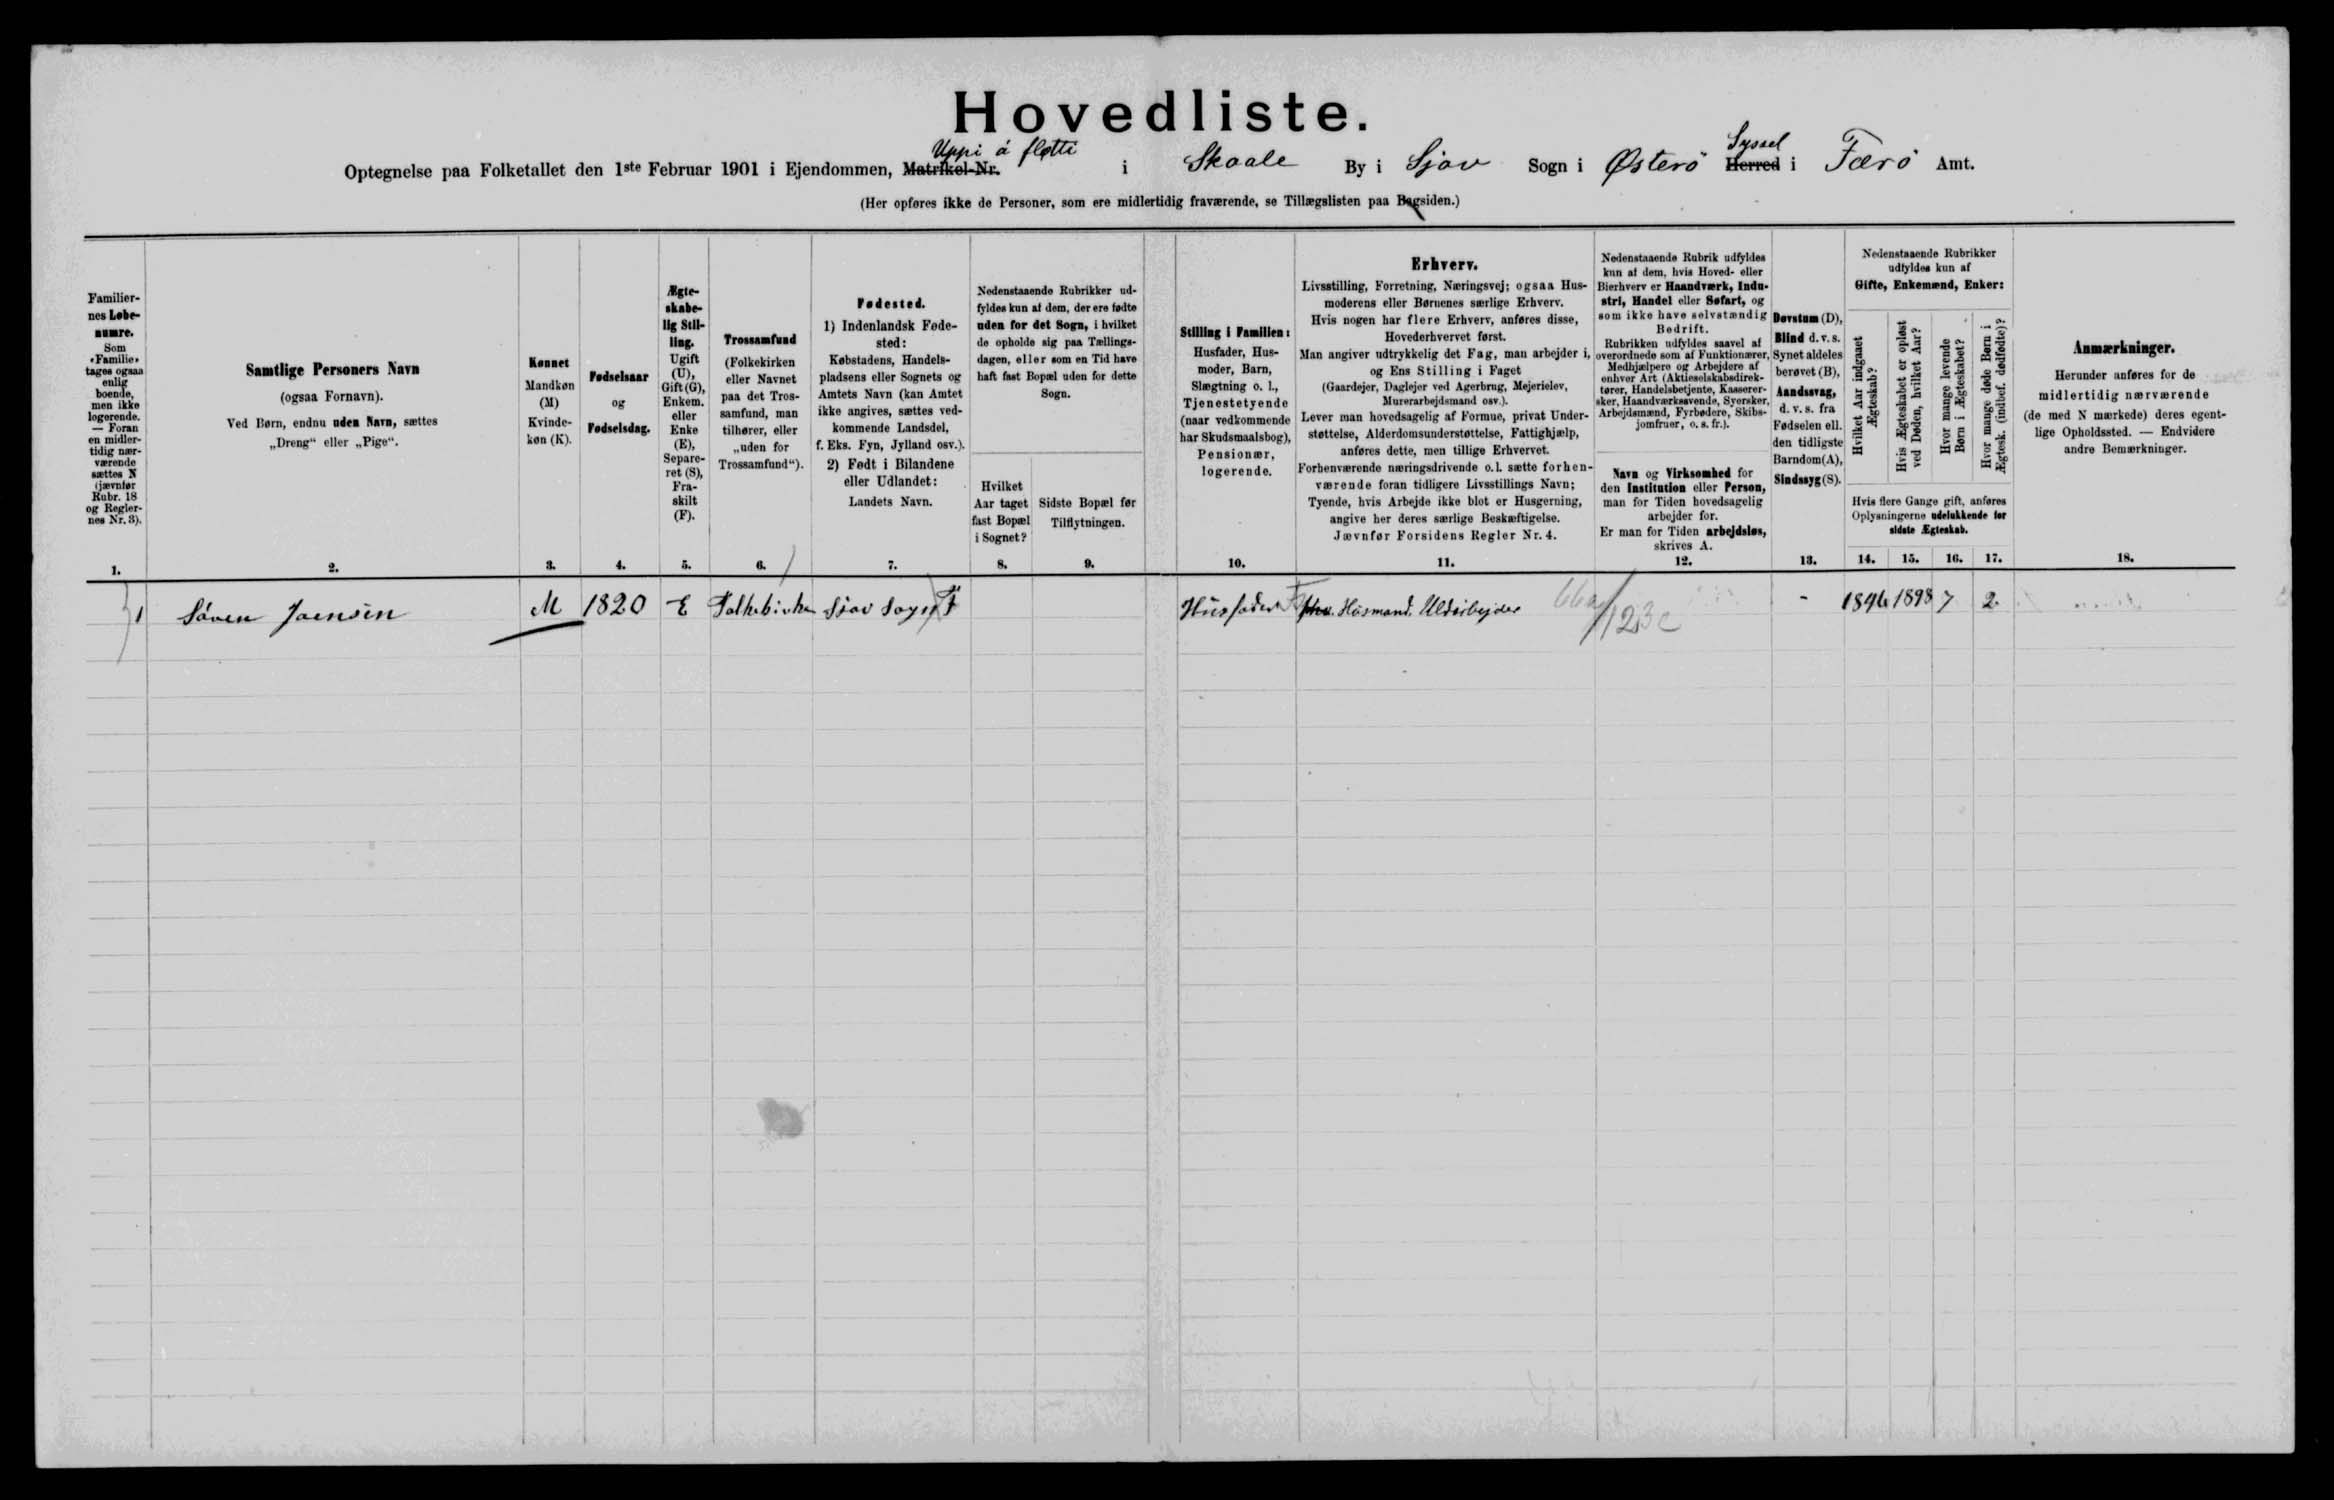 Hovedliste.
Optegnelse paa Folketallet den 1ste Februar 1901 i Ejendommen, Matrikel-Nr. Uppi á fløtti i Skaale By i Sjov Sogn i Østerö Herred Syssel i Færö Amt.
(Her opføres ikke de Personer, som ere midlertidig fraværende, se Tillægslisten paa Bagsiden.)
Familier-
nes Løbe-
numre.
Som
»Familie»
tages ogsaa
enlig
boende,
men ikke
logerende.
— Foran
en midler-
tidig nær-
værende
sættes N
(jævnfør
Rubr. 18
og Regler-
nes Nr. 3).
1.
Samtlige Personers Navn
(ogsaa Fornavn).
Ved Børn, endnu uden Navn, sættes
„Dreng“ eller „Pige“.
2.
Kønnet
Mandkøn
(M)
Kvinde-
køn (K).
3.
Fødselsaar
og
Fødselsdag.
4.
Ægte-
skabe-
lig Stil-
ling.
Ugift
(U),
Gift (G),
Enkem.
eller
Enke
(E),
Separe-
ret (S),
Fra-
skilt
(F).
5.
Trossamfund
(Folkekirken
eller Navnet
paa det Tros-
samfund, man
tilhører, eller
„uden for
Trossamfund“).
6.
Fødested.
1) Indenlandsk Føde-
sted:
Købstadens, Handels-
pladsens eller Sognets og
Amtets Navn (kan Amtet
ikke angives, sættes ved-
kommende Landsdel,
f. Eks. Fyn, Jylland osv.).
2) Født i Bilandene
eller Udlandet:
Landets Navn.
7.
Nedenstaaende Rubrikker ud-
fyldes kun af dem, der ere fødte
uden for det Sogn, i hvilket
de opholde sig paa Tællings-
dagen, eller som en Tid have
haft fast Bopæl uden for dette
Sogn.
Hvilket
Aar taget
fast Bopæl
i Sognet?
8.
Sidste Bopæl før
Tilflytningen.
9.
Stilling i Familien:
Husfader, Hus-
moder, Barn,
Slægtning o. l.,
Tjenestetyende
(naar vedkommende
har Skudsmaalsbog),
Pensionær,
logerende.
10.
Erhverv.
Livsstilling, Forretning, Næringsvej; ogsaa Hus-
moderens eller Børnenes særlige Erhverv.
Hvis nogen har flere Erhverv, anføres disse,
Hovederhvervet først.
Man angiver udtrykkelig det Fag, man arbejder i,
og Ens Stilling i Faget
(Gaardejer, Daglejer ved Agerbrug, Mejerielev,
Murerarbejdsmand osv.).
Lever man hovedsagelig af Formue, privat Under-
støttelse, Alderdomsunderstøttelse, Fattighjælp,
anføres dette, men tillige Erhvervet.
Forhenværende næringsdrivende o.l. sætte forhen-
værende foran tidligere Livsstillings Navn;
Tyende, hvis Arbejde ikke blot er Husgerning,
angive her deres særlige Beskæftigelse.
Jævnfør Forsidens Regler Nr. 4.
11.
Nedenstaaende Rubrik udfyldes
kun af dem, hvis Hoved- eller
Bierhverv er Haandværk, Indu-
stri, Handel eller Søfart, og
som ikke have selvstændig
Bedrift.
Rubrikken udfyldes saavel af
overordnede som af Funktionærer,
Medhjælpere og Arbejdere af
enhver Art (Aktieselskabsdirek-
tører, Handelsbetjente, Kasserer-
sker, Haandværkssvende, Syersker,
Arbejdsmænd, Fyrbødere, Skibs-
jomfruer, o. s. fr.).
Navn og Virksomhed for
den Institution eller Person,
man for Tiden hovedsagelig
arbejder for.
Er man for Tiden arbejdsløs,
skrives A.
12.
Døvstum (D),
Blind d. v. s.
Synet aldeles
berøvet (B),
Aandssvag,
d. v. s. fra
Fødselen ell.
den tidligste
Barndom(A),
Sindssyg (S).
13.
Nedenstaaende Rubrikker
udfyldes kun af
Gifte, Enkemænd, Enker:
Hvilket Aar indgaaet
Ægteskab?
Hvis Ægteskabet er opløst
ved Døden, hvilket Aar?
Hvor mange levende
Børn i Ægteskabet?
Hvor mange døde Børn i
Ægtesk. (indbef. dødfødte)?
Hvis flere Gange gift, anføres
Oplysningerne udelukkende for
sidste Ægteskab.
14. 15. 16. 17.
Anmærkninger.
Herunder anføres for de
midlertidig nærværende
(de med N mærkede) deres egent-
lige Opholdssted. — Endvidere
andre Bemærkninger.
18.
1 Sören Joensen M 1820 E Folkekirken Sjov Sogn F Husfader Husmand. Uldarbejder 66a/123c - 1846 1898 7 2